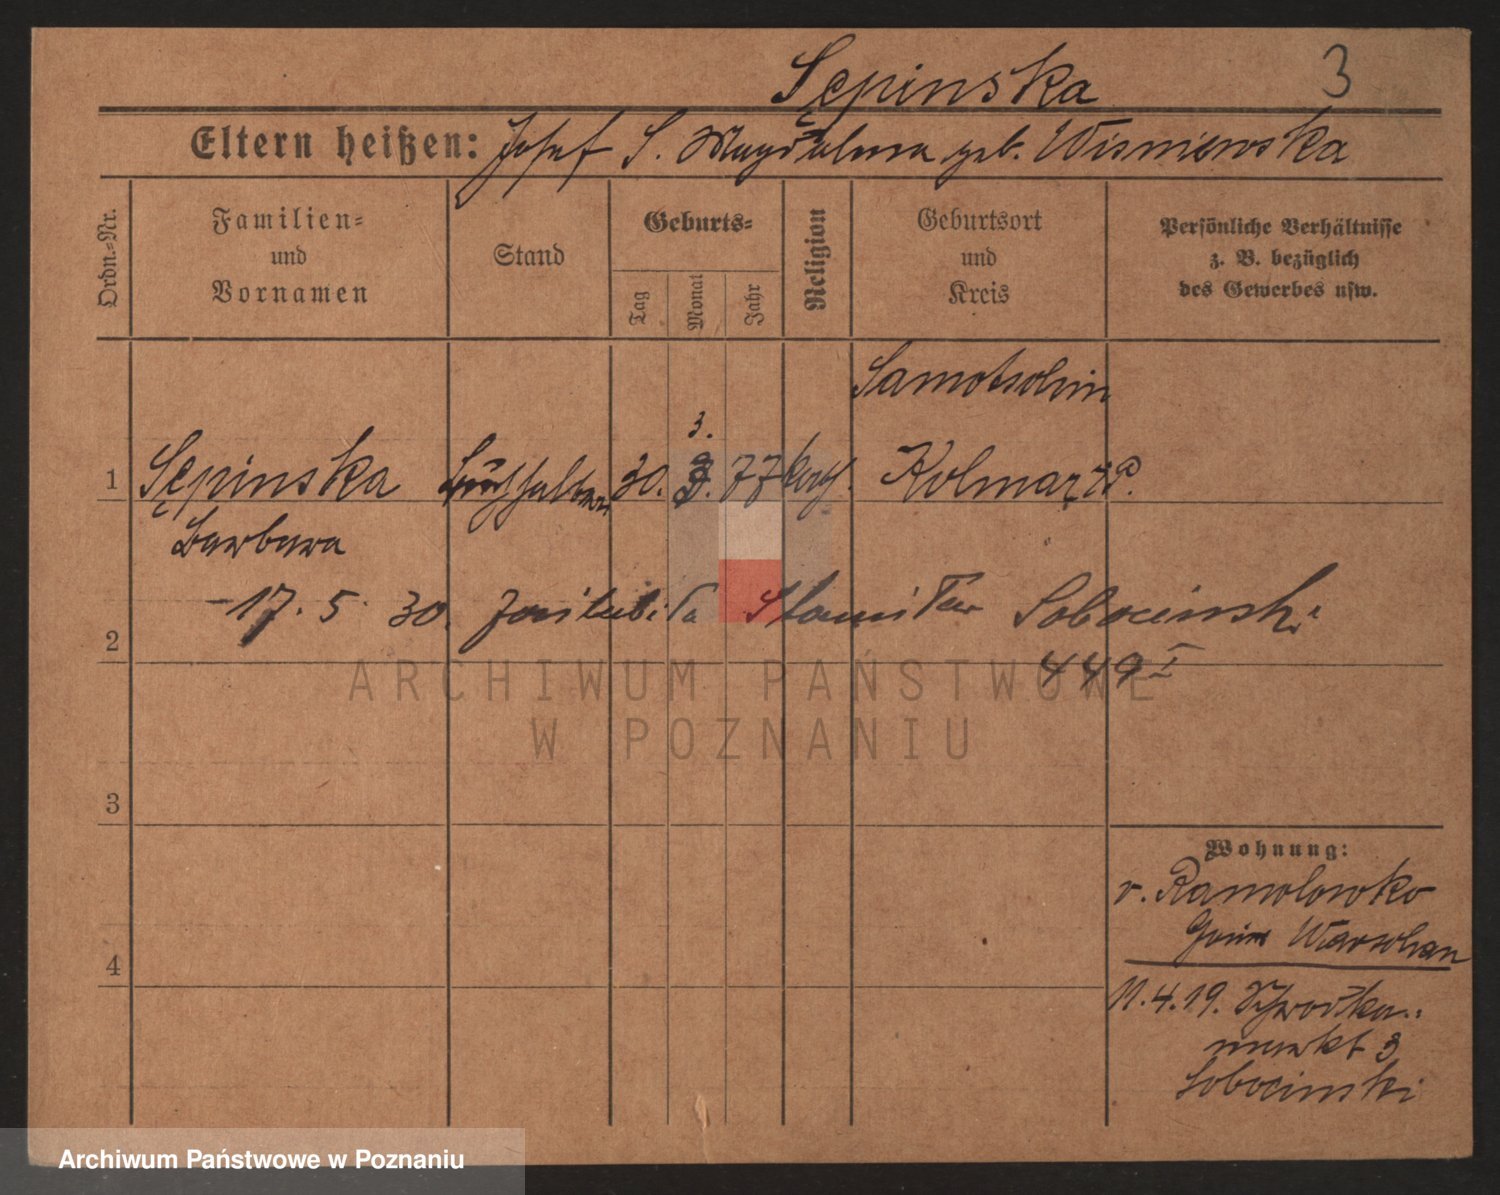 Sępinska 3
Eltern heißen: Josef S. Magdalena geb. Wisniewska
Ordn.=Nr.
Familien=
und
Vornamen
Stand
Geburts=
Tag
Monat
Jahr
Religion
Geburtsort
und
Kreis
Persönliche Verhältnisse
z. B. bezüglich
des Gewerbes usw.
Samotschin
3.
1 Sępinska 30. 77 Kolmar i/P.
Barbara
17. 5. 30. Stanisław Sobocinski
2
449 I
3
Wohnung:
v. Ramolowko
Warschau
4
11. 4. 19.
markt 3
Sobocinski
ARCHIWUM PAŃSTWOWE
W POZNANIU
Archiwum Państwowe w Poznaniu